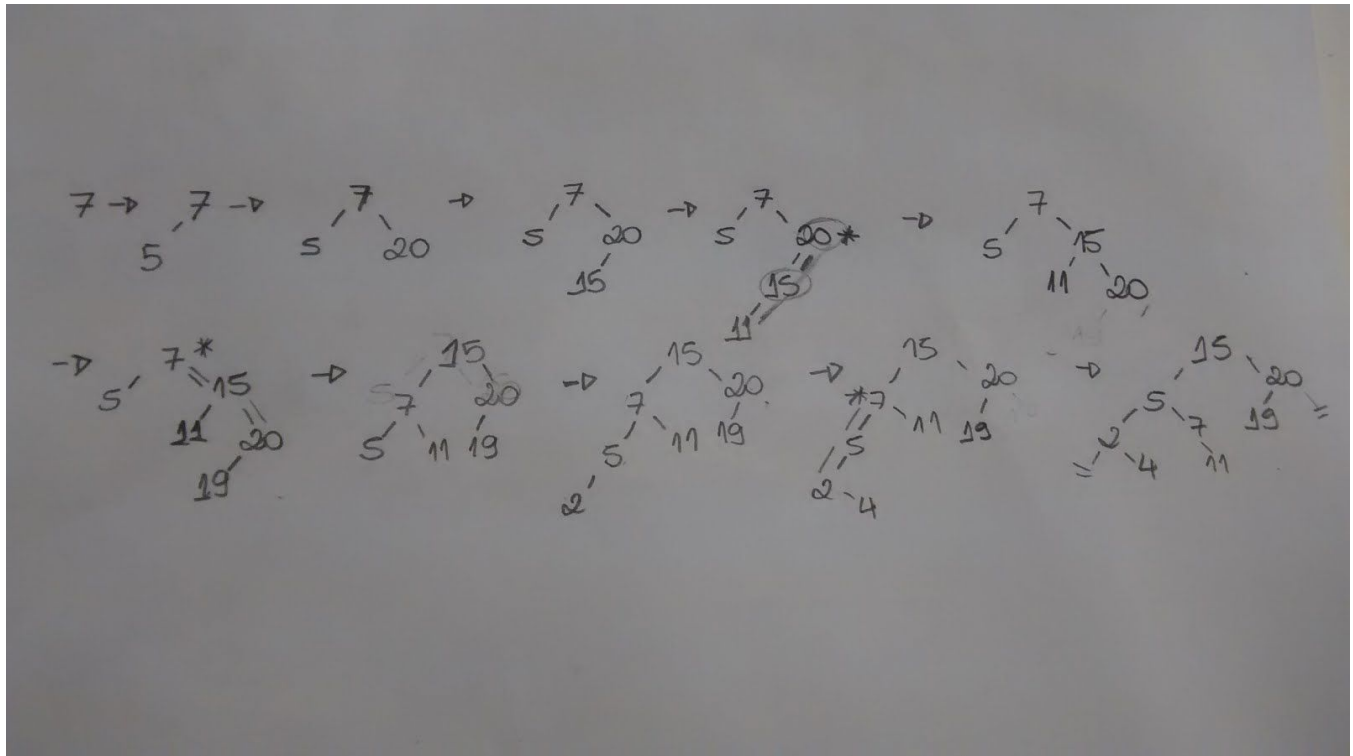 7 → 7 → 7 → 7 → 7 → 7
5 5 20 5 20 5 20 * 5 15
15 15 11 20
11
→ 7 * → 15 → 15 → 15 → 15
5 15 7 20 7 20 * 7 20 5 20
11 20 5 11 19 5 11 19 5 11 19 2 7 19
19 2 2 4 4 11